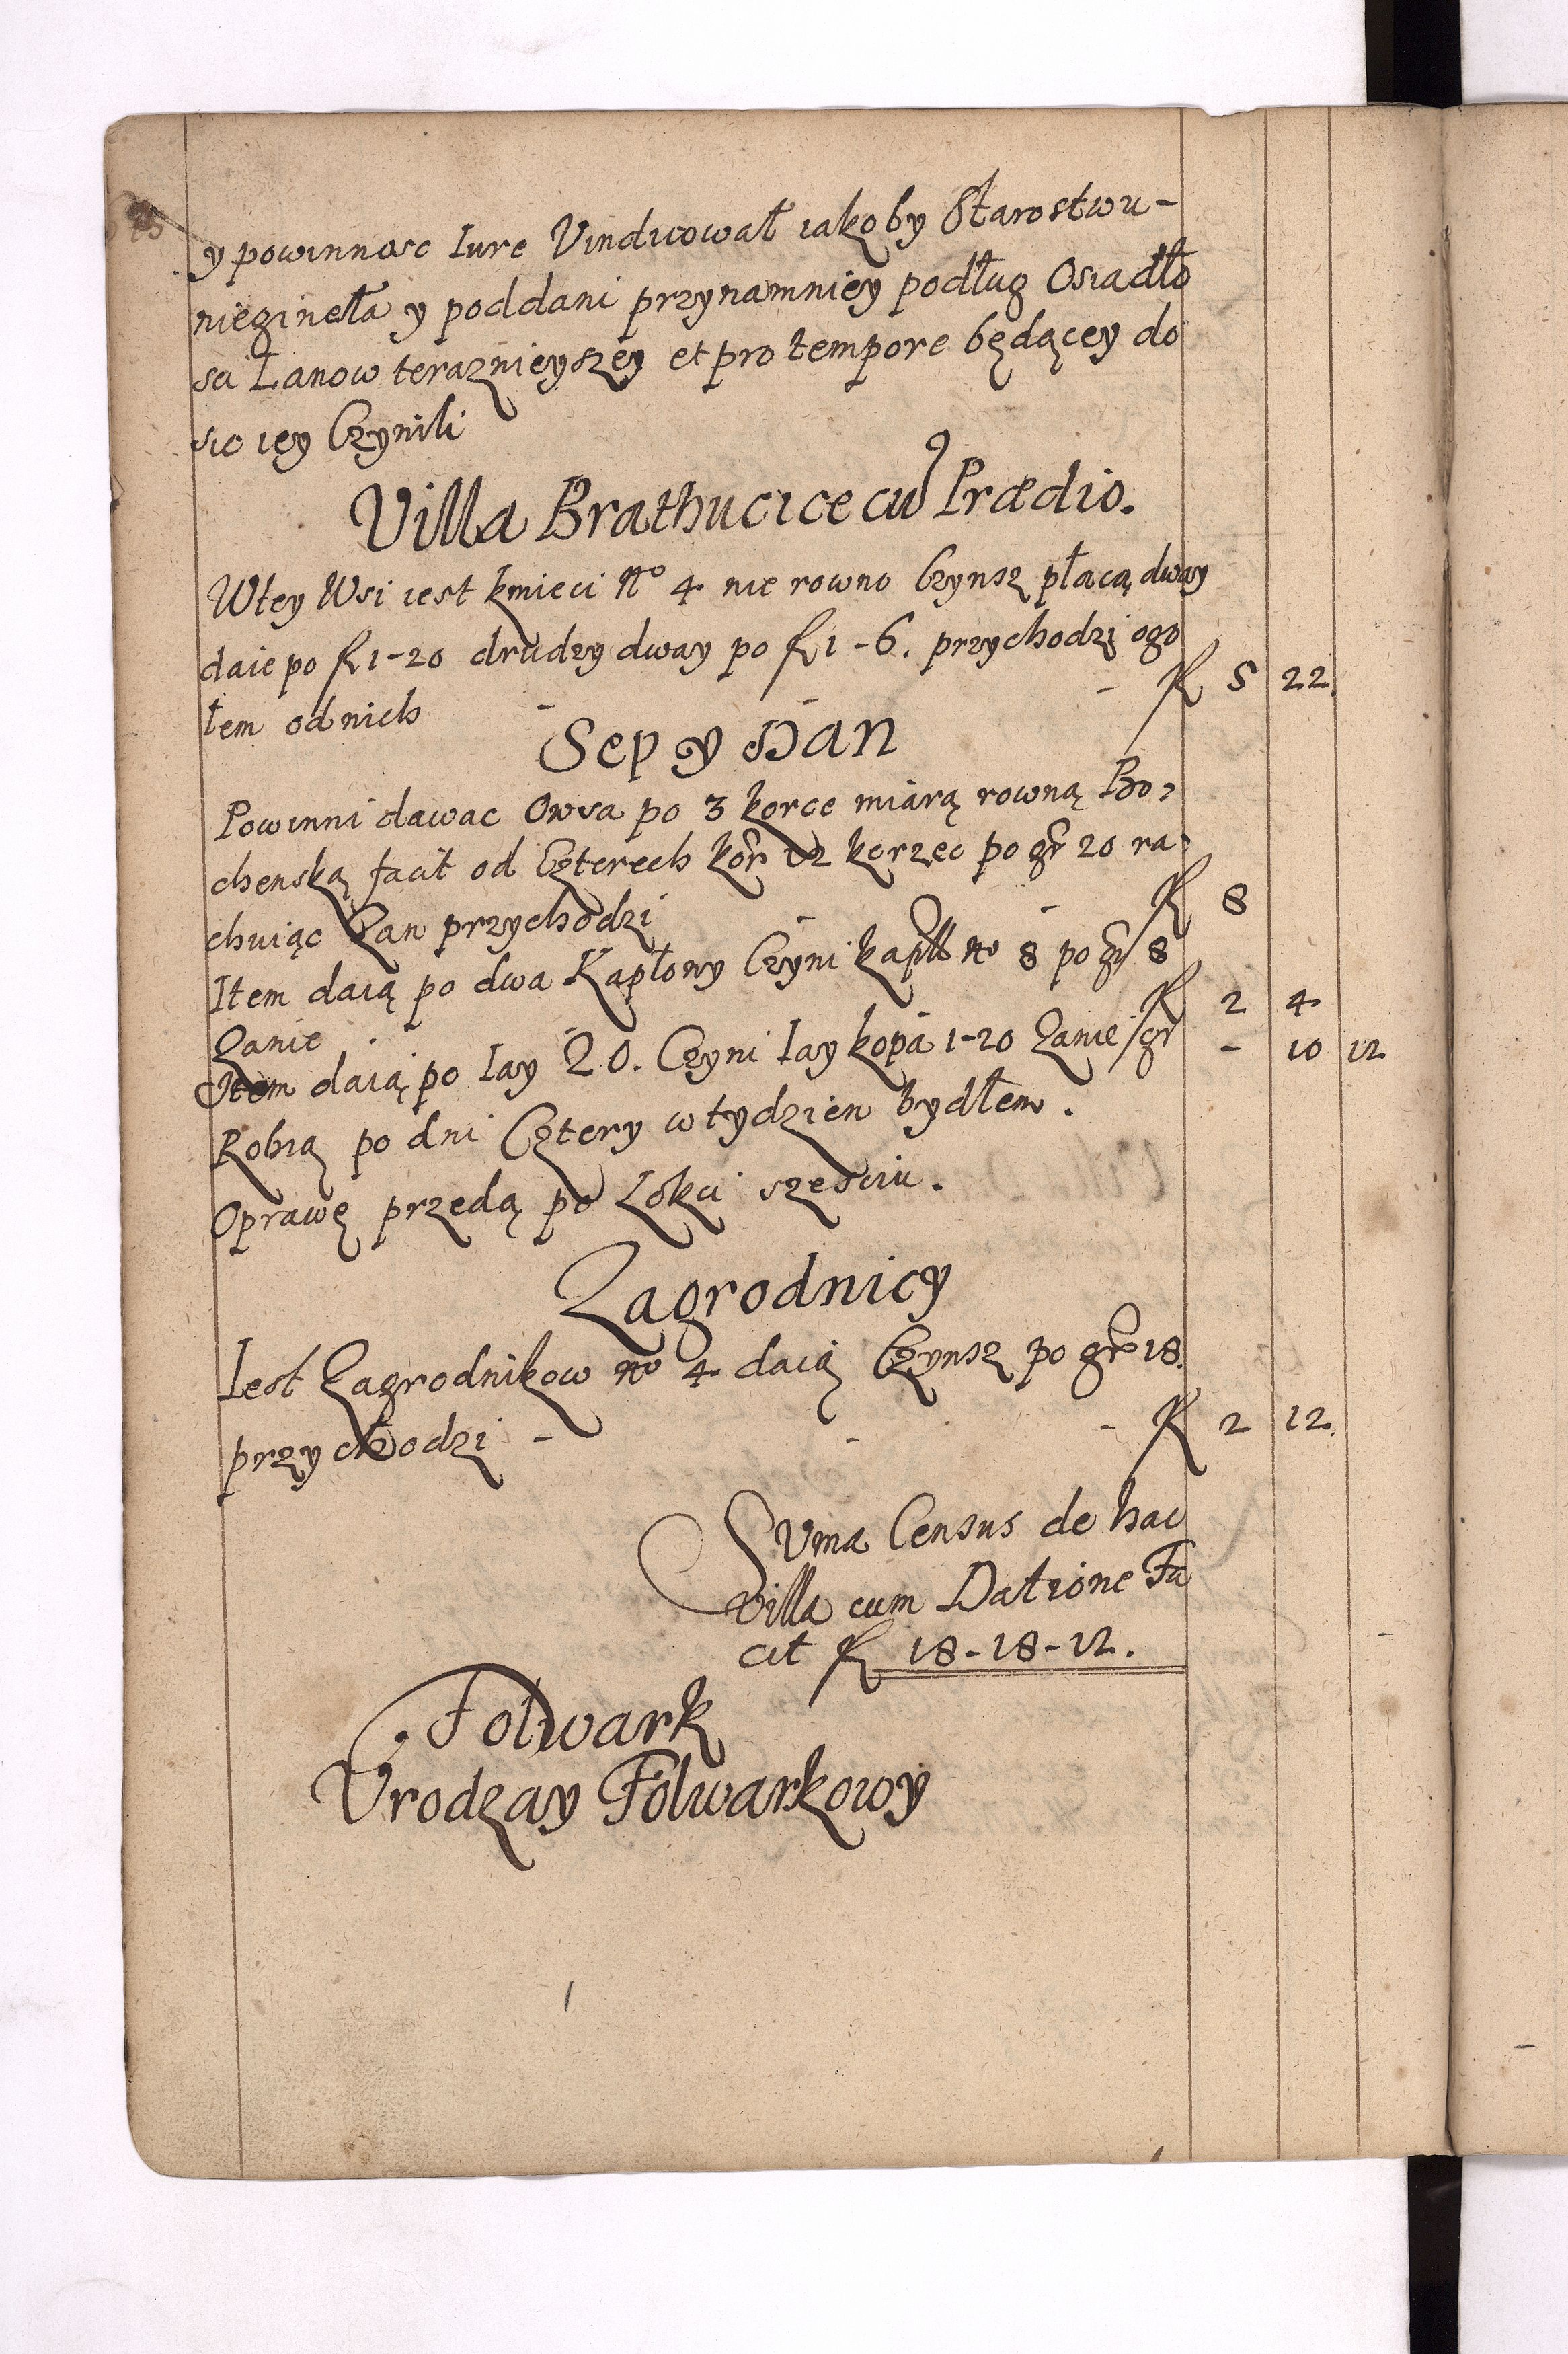 y powinnosc Iure Vindicował iakoby Starostwu-
niezineła y poddani przynamniey podług Osiadło
sci Łanow teraznieyszey et pro tempore będącey do
sic iey Czynili
Villa Brathucice cu Prædio.
Wtey Wsi iest kmieci No 4 nie rowno Czynsz płacą dway
daie po fl 1-20 drudzy dway po fl 1-6. przychodzi ogo
łem od nich - - - fl 5 22.
Sep y Dan
Powinni dawac Owsa po 3 korce miarą rowną Bo,
chenską facit od Czterech kor 12 korzec po gr 20 ra,
chuiąc Zan przychodzi - - fl 8
Item daią po dwa Kapłony Czyni kapłł No 8 po gr 8
Zanie fl 2 4
Item daią po Iay 20. Czyni Iay kopa 1-20 Zanie/gr - 10 12
Robią po dni Cztery w tydzien bydłem.
Oprawę przedą po Łokci szesciu.
Zagrodnicy
Iest Zagrodnikow No 4 daią Czynsz po gr 18.
przychodzi - - - fl 2 12.
Suma Census de hac
Villa cum Datione Fa
cit fl 18-18-12.
Folwark
Vrodzay Folwarkowy